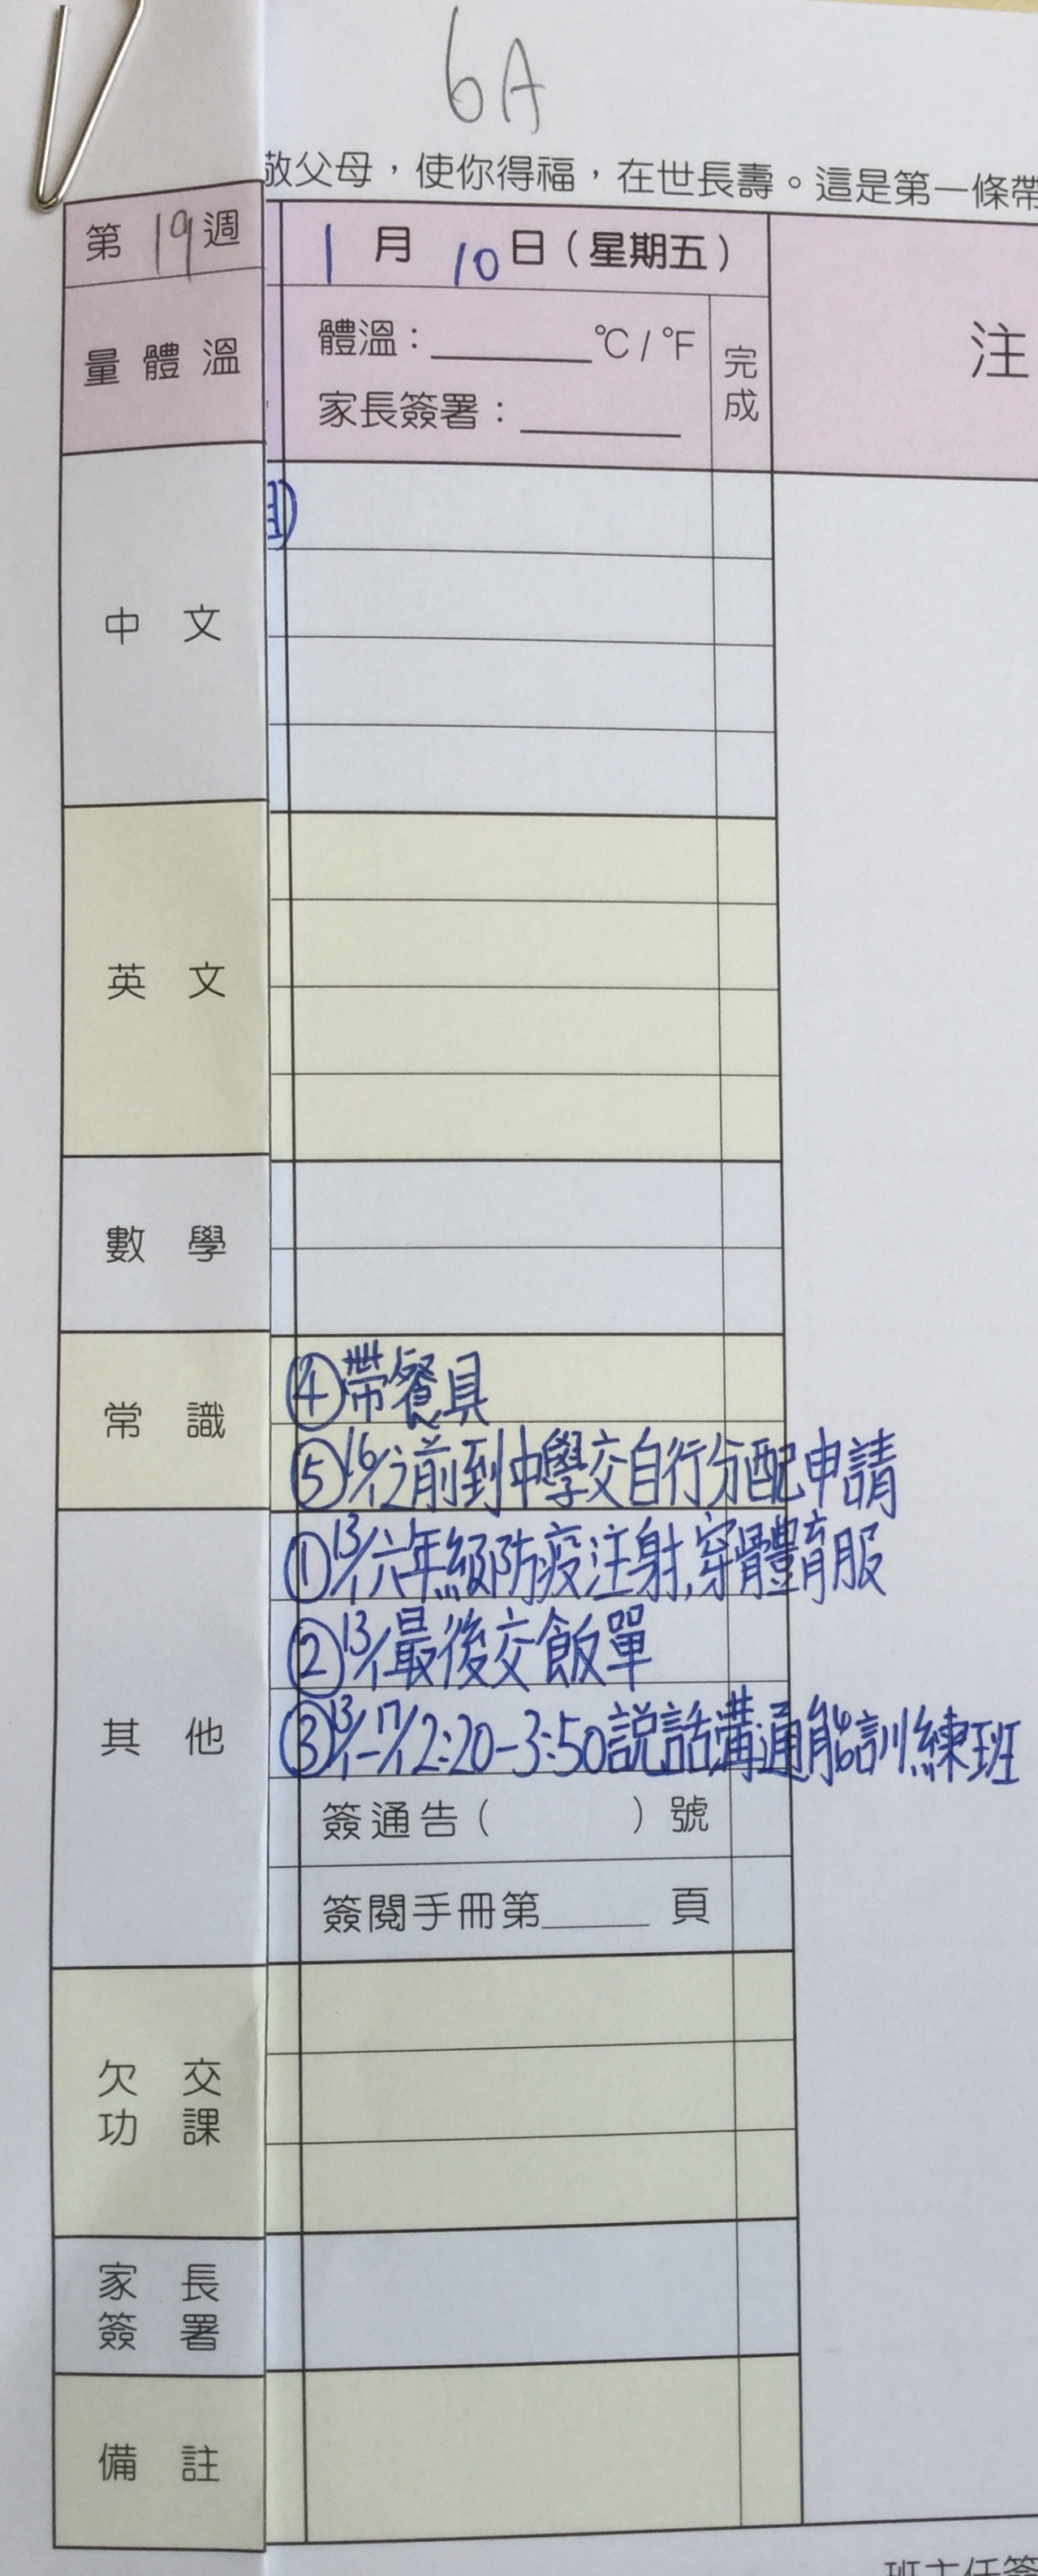 6A
敬父母，使你得福，在世長壽。這是第一條帶
第 19 週
1 月 10 日（星期五）
注
量體溫
體溫：______°C / °F
完成
家長簽署：______
中文
英文
數學
常識
④帶餐具
⑤16/1之前到中學交自行分配申請
其他
①13/1六年級防疫注射,穿體育服
②13/1最後交飯單
③13/1-17/1 2:20-3:50説話溝通能訓練班
簽通告（　　）號
簽閱手冊第______頁
欠交功課
家長簽署
備註
班主任簽